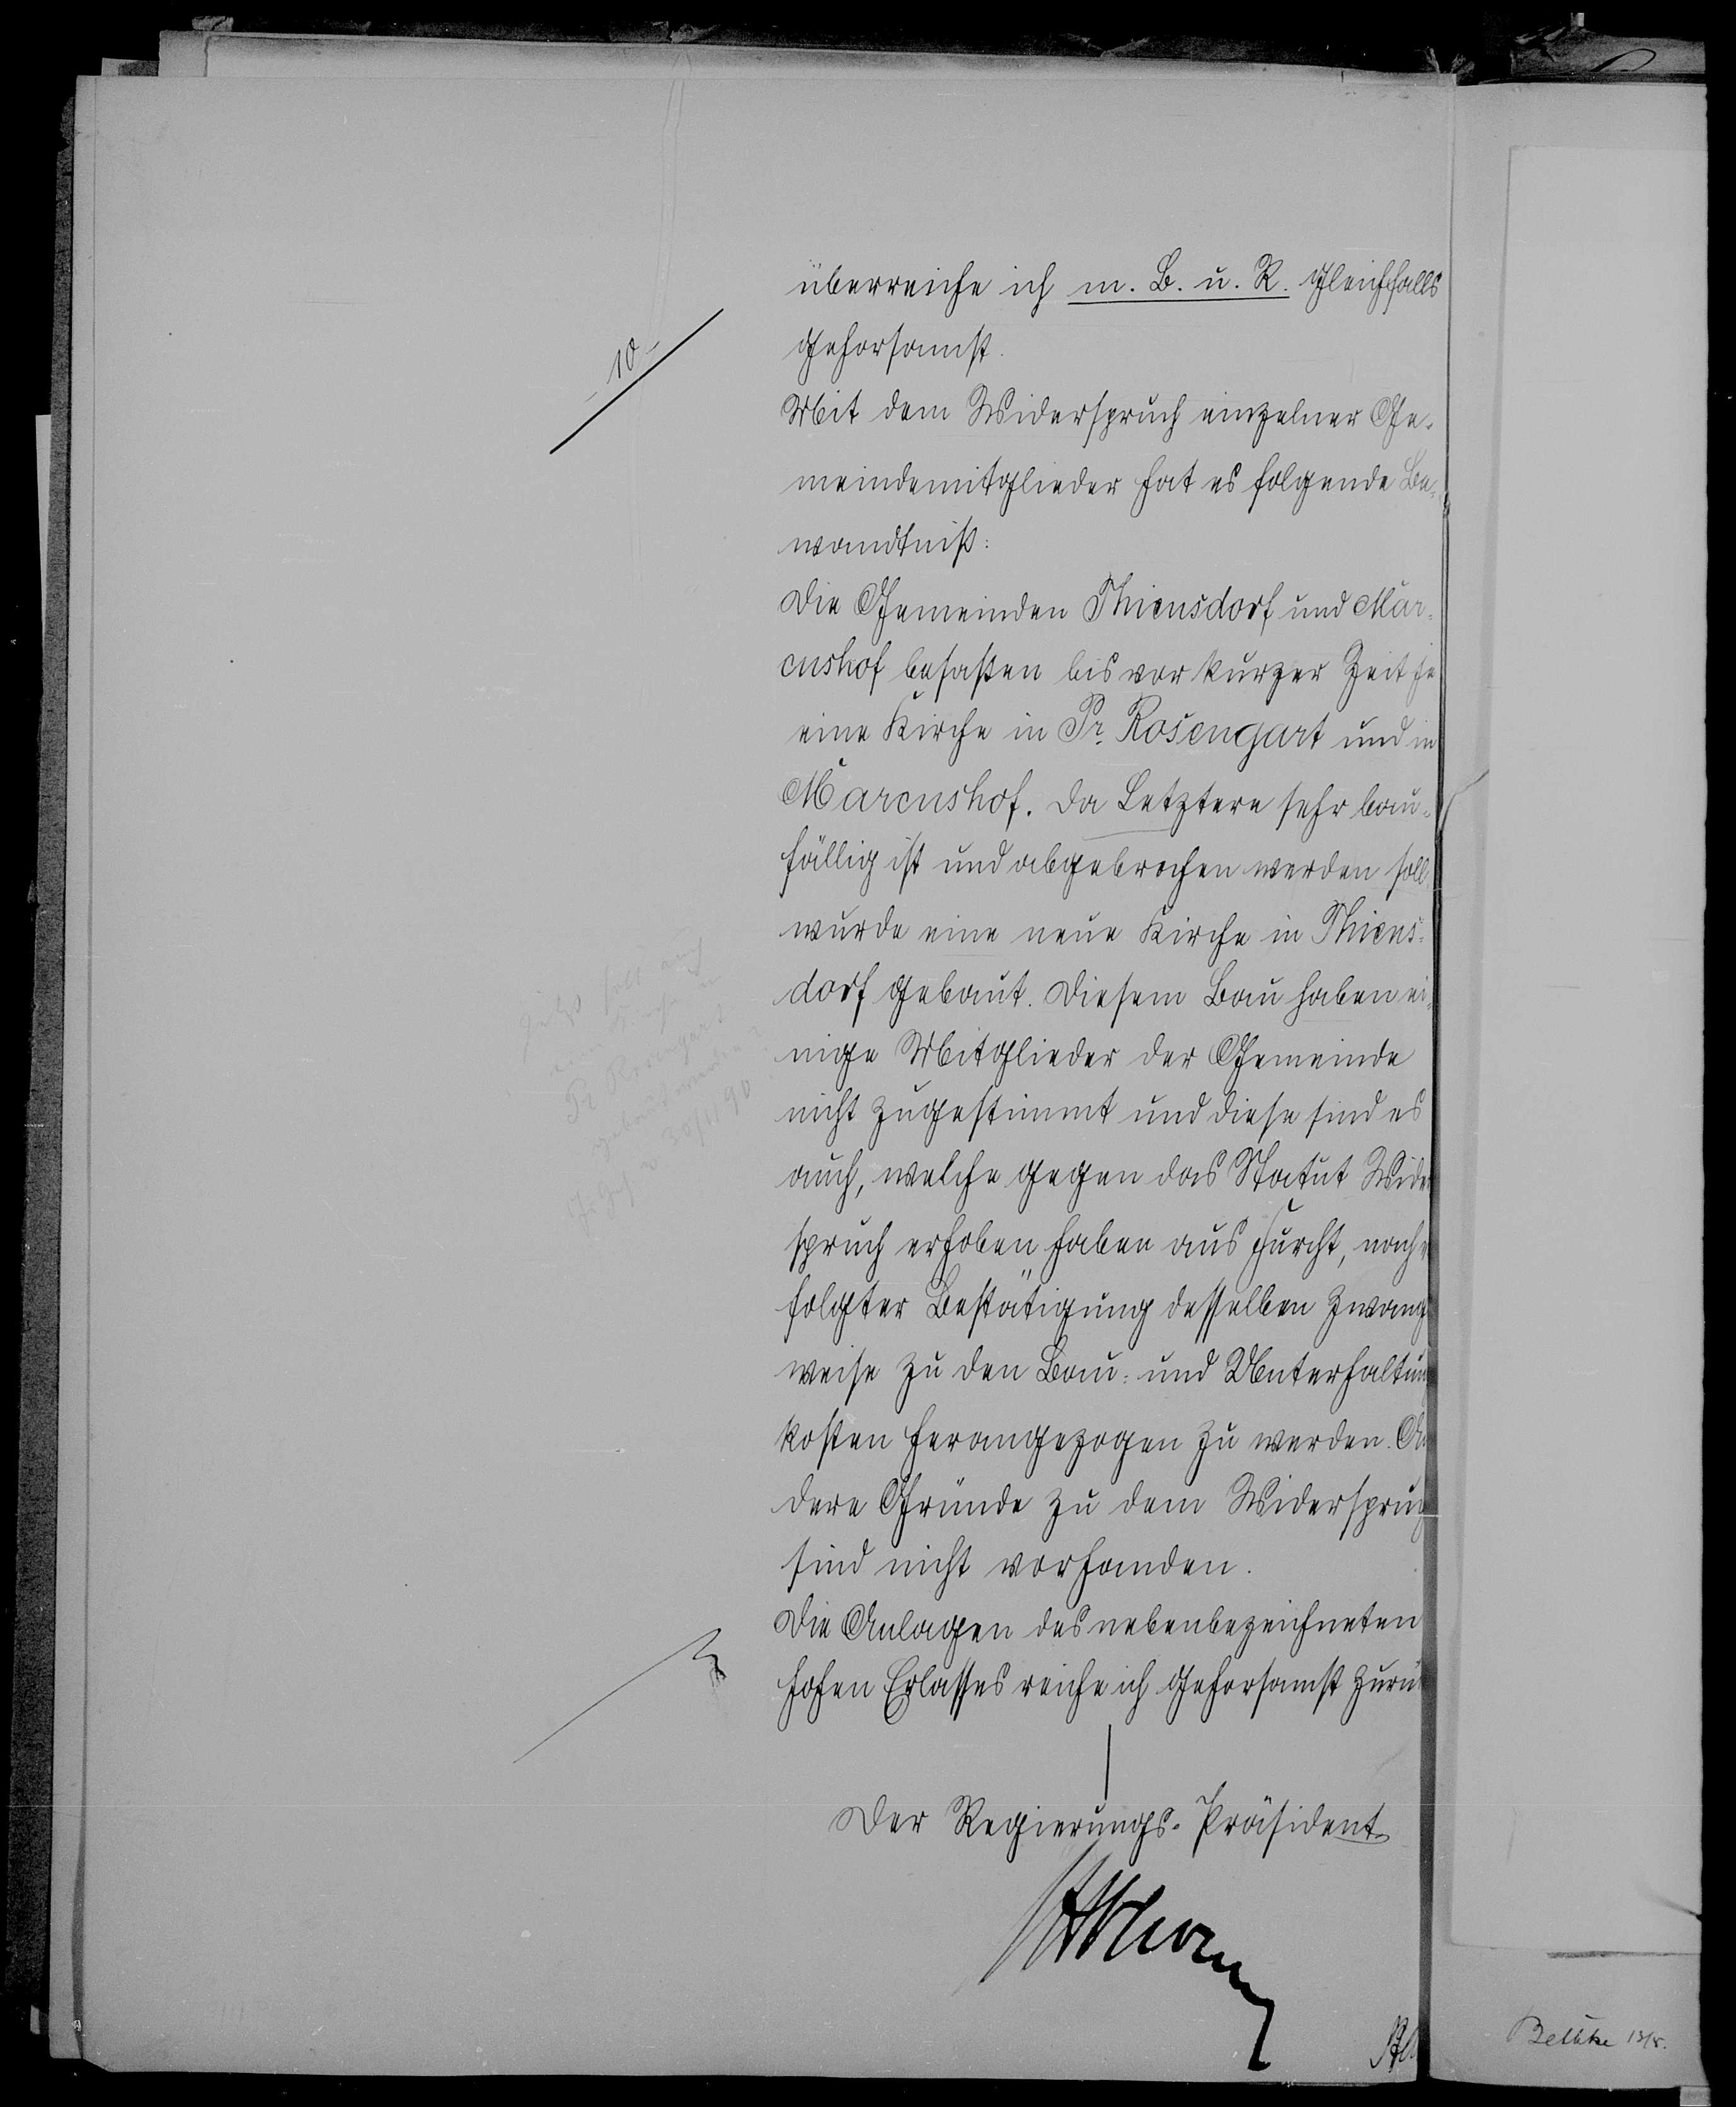 überreiche ich m. B. u. R. gleichfalls
gehorsamst.
10
Mit dem Widerspruch einzelner Ge-
meindemitglieder hat es folgende Be-
wandtniß:
Die Gemeinden Thiensdorf und Mar-
cushof besaßen bis vor kurzer Zeit je
eine Kirche in Pr. Rosengart und in
Marcushof. Da Letztere sehr bau-
fällig ist und abgebrochen werden soll,
wurde eine neue Kirche in Thiens-
dorf gebaut. Diesem Bau haben ei-
nige Mitglieder der Gemeinde
nicht zugestimmt und diese sind es
auch, welche gegen das Statut Wider
spruch erhoben haben aus Furcht, nach
folgter Bestätigung desselben zwangs
weise zu den Bau- und Unterhaltung
kosten herangezogen zu werden. An
dere Gründe zu dem Widerspruch
sind nicht vorhanden.
Die Anlagen des nebenbezeichneten
hohen Erlasses reiche ich gehorsamst zurü
Der Regierungs-Präsident
soll auch
Pr Rosengart
30/11 90
13/5.